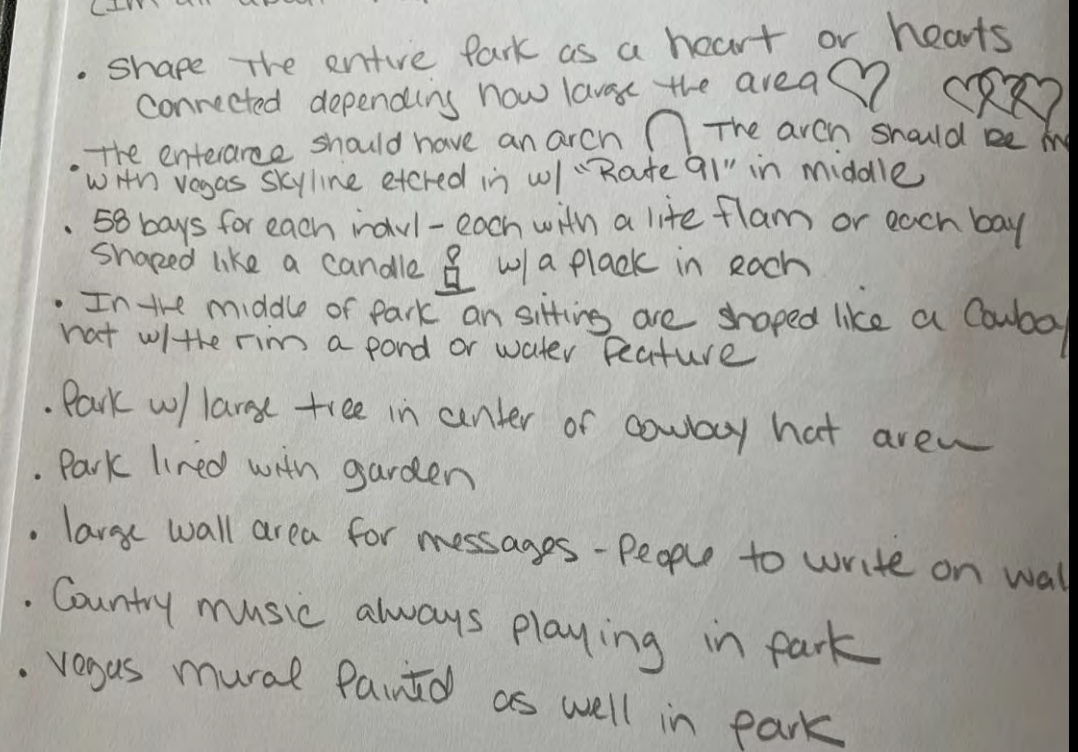 (Im all about
. Shape The entire Park as a heart or hearts
connected depending how large the area
. The enterance should have an arch The arch should be
with vegas skyline etched in w/ "Route 91" in middle
. 58 bays for each indvl - each with a lite flam or each bay
shaped like a candle w/ a plack in each
. In the middle of park an sitting are shaped like a Cowboy
hat w/ the rim a pond or water feature
. Park w/ large tree in center of cowboy hat area
. Park lined with garden
. large wall area for messages - People to write on wal
. Country music always playing in park
. vegas mural Painted as well in park